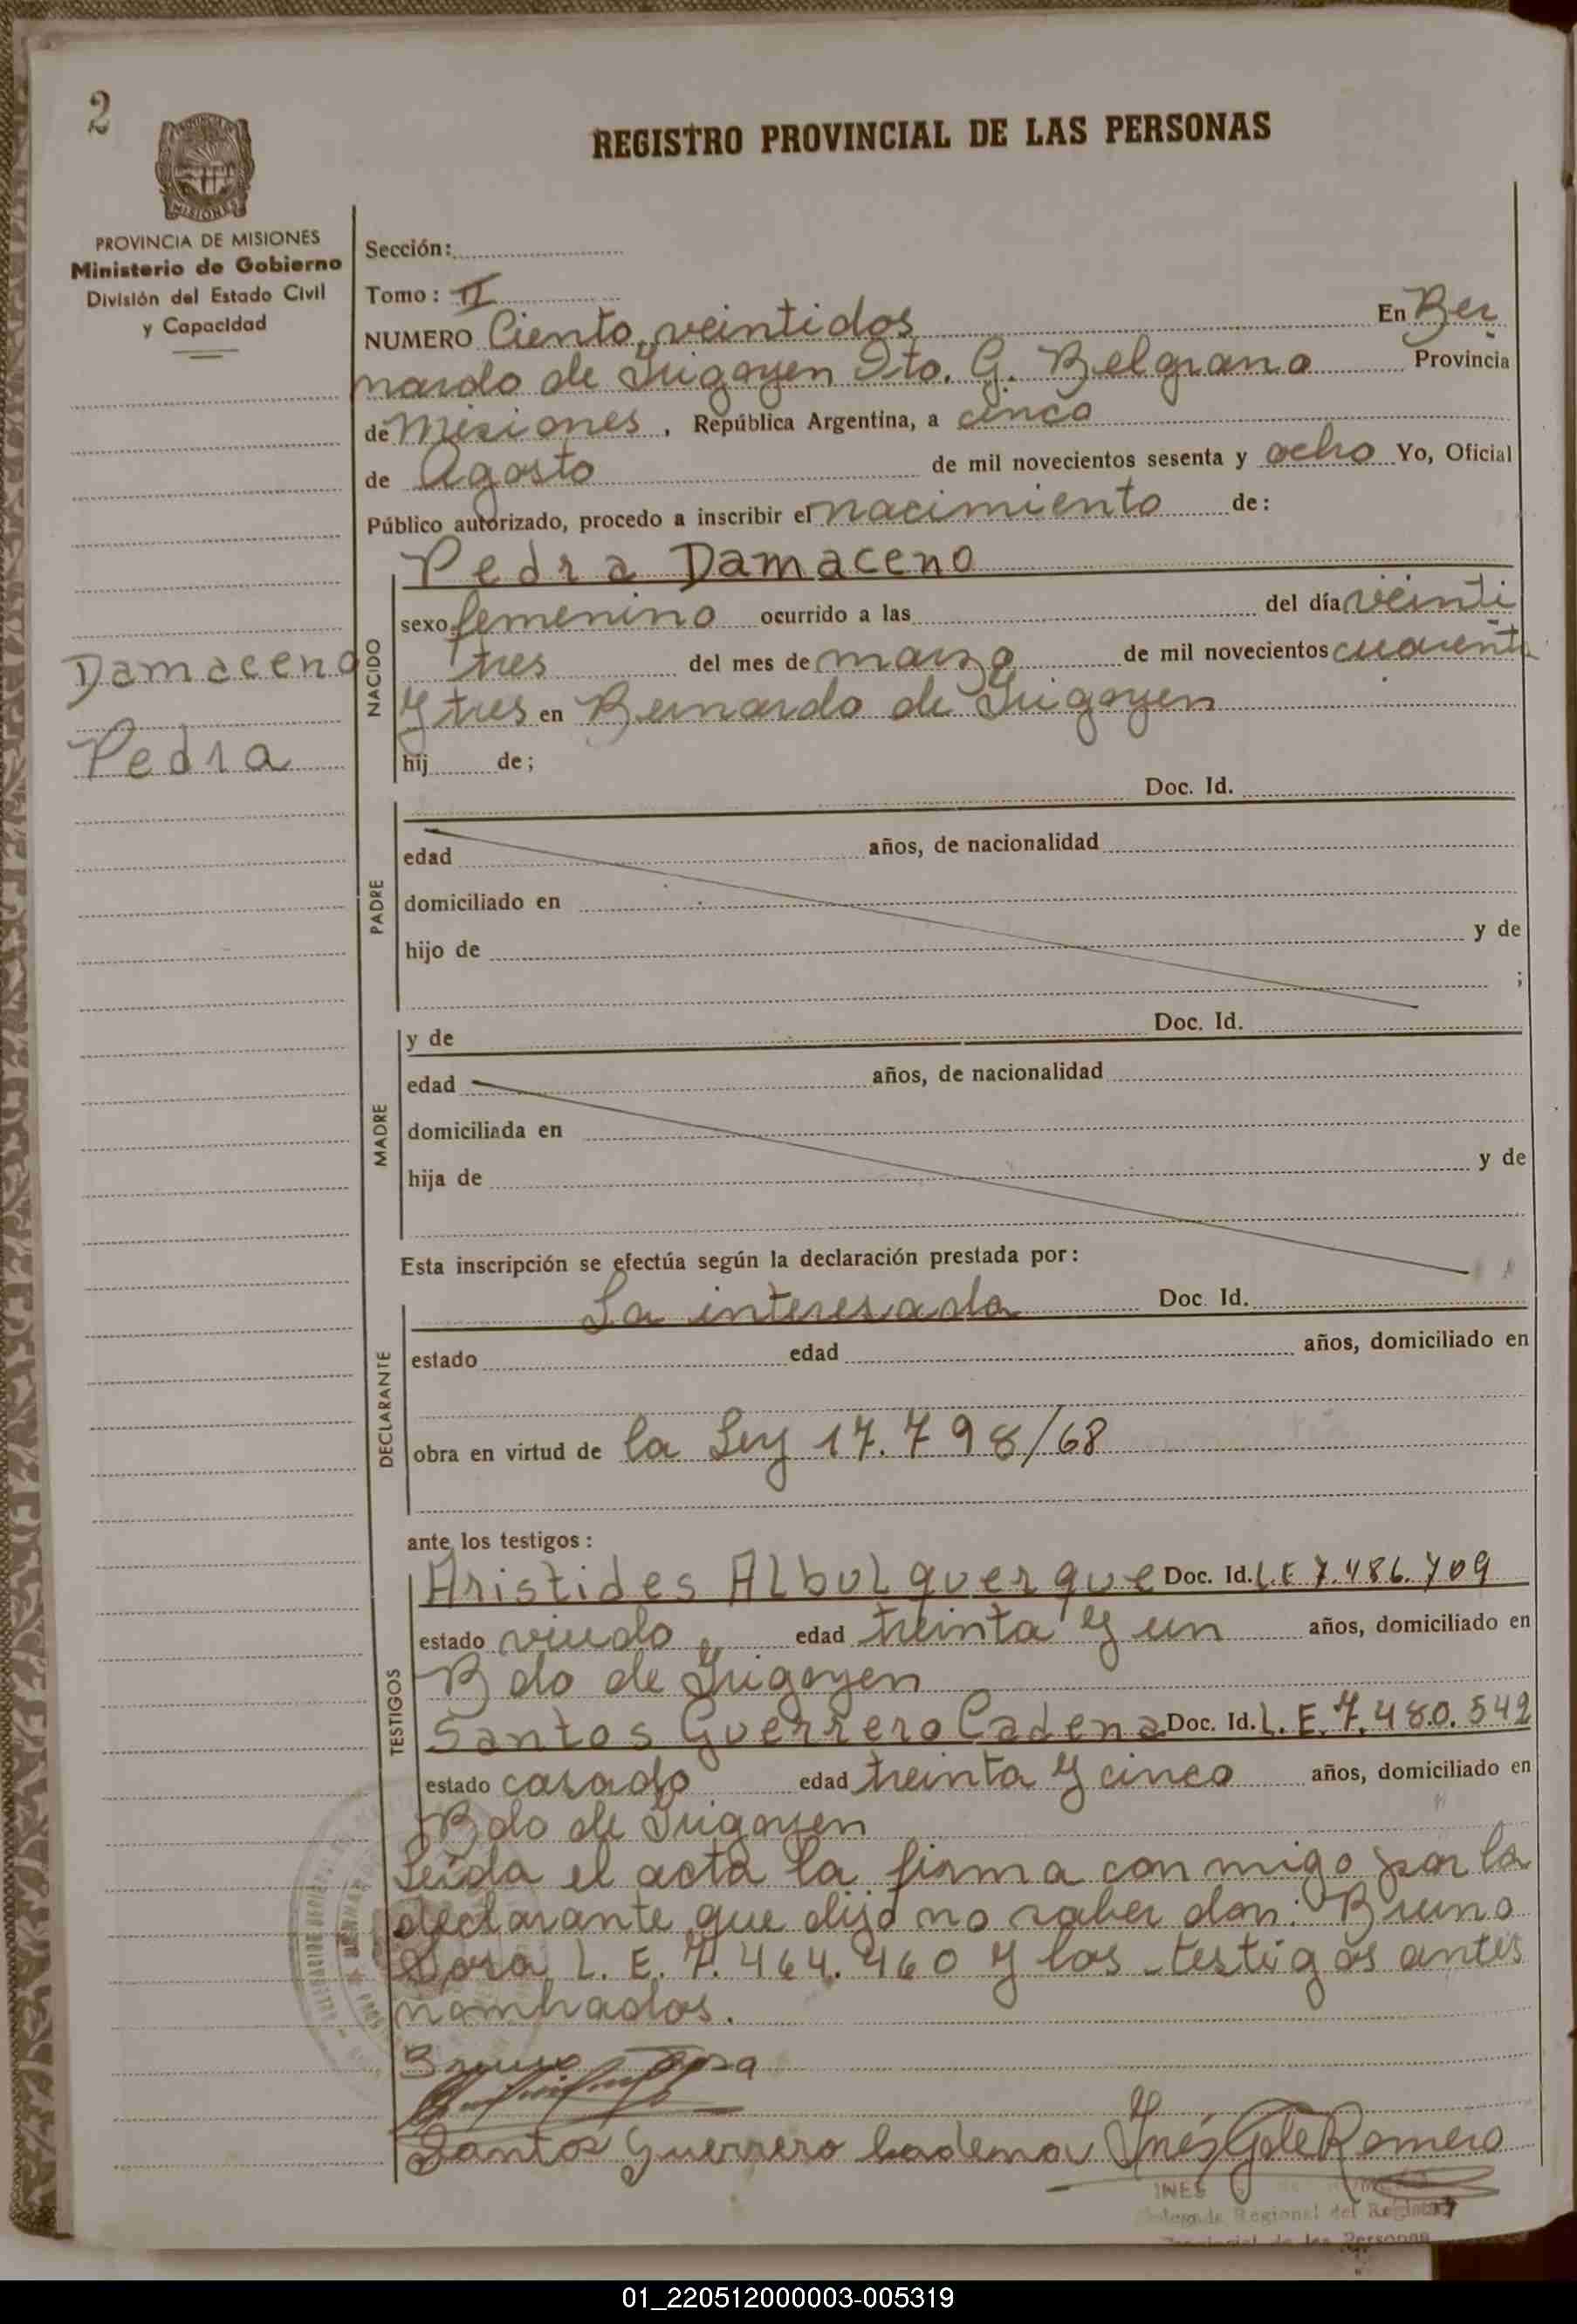 2
REGISTRO PROVINCIAL DE LAS PERSONAS
MISIONES
PROVINCIA DE MISIONES
Ministerio de Gobierno
División del Estado Civil
y Capacidad
Sección:
Tomo: II
NUMERO Ciento veintidos En Ber
nardo de Irigoyen Dto. G. Belgrano Provincia
de Misiones, República Argentina, a cinco
de Agosto de mil novecientos sesenta y ocho Yo, Oficial
Público autorizado, procedo a inscribir el nacimiento de:
Pedra Damaceno
sexo femenino ocurrido a las del día veinti
tres del mes de marzo de mil novecientos cuarenta
y tres en Bernardo de Irigoyen
hij de;
NACIDO
Damaceno
Pedra
Doc. Id.
edad años, de nacionalidad
domiciliado en
hijo de y de
;
PADRE
y de Doc. Id.
edad años, de nacionalidad
domiciliada en
hija de y de
MADRE
Esta inscripción se efectúa según la declaración prestada por:
La interesada Doc. Id.
estado edad años, domiciliado en
obra en virtud de la Ley 17.798/68
DECLARANTE
ante los testigos:
Aristides Albulquerque Doc. Id. L.E 7.486.709
estado viudo, edad treinta y un años, domiciliado en
Bdo de Irigoyen
Santos Guerrero Cadena Doc. Id. L.E. 7.480.542
estado casado edad treinta y cinco años, domiciliado en
Bdo de Irigoyen
TESTIGOS
Leida el acta la firma con migo por la
declarante que dijo no saber don: Bruno
Sosa L. E. 7.464.460 y los testigos antes
nombrados.
Bruno Sosa
Santos Guerrero Cadena Inés G de Romero
INES
Delegada Regional del Registro
Provincial de las Personas
01_220512000003-005319